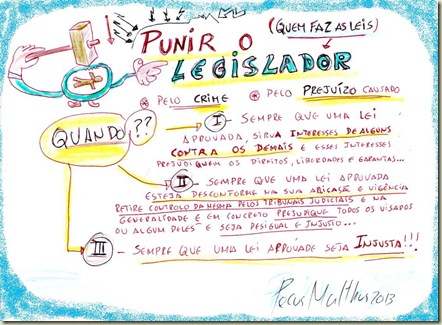 PUNIR O (QUEM FAZ AS LEIS)
LEGISLADOR
* PELO CRIME * PELO PREJUÍZO CAUSADO
QUANDO??
I - SEMPRE QUE UMA LEI
APROVADA, SIRVA INTERESSES DE ALGUNS
CONTRA OS DEMAIS E ESSES INTERESSES
PREJUDIQUEM OS DIREITOS, LIBERDADES E GARANTIAS...
II - SEMPRE QUE UMA LEI APROVADA
ESTEJA DESCONFORME NA SUA APLICAÇÃO E VIGÊNCIA
RETIRE CONTROLO DA MESMA PELOS TRIBUNAIS JUDICIAIS E NA
GENERALIDADE E EM CONCRETO PREJUDIQUE TODOS OS VISADOS
OU ALGUM DELES E SEJA DESIGUAL E INJUSTO...
III - SEMPRE QUE UMA LEI APROVADE SEJA INJUSTA!!!
2013